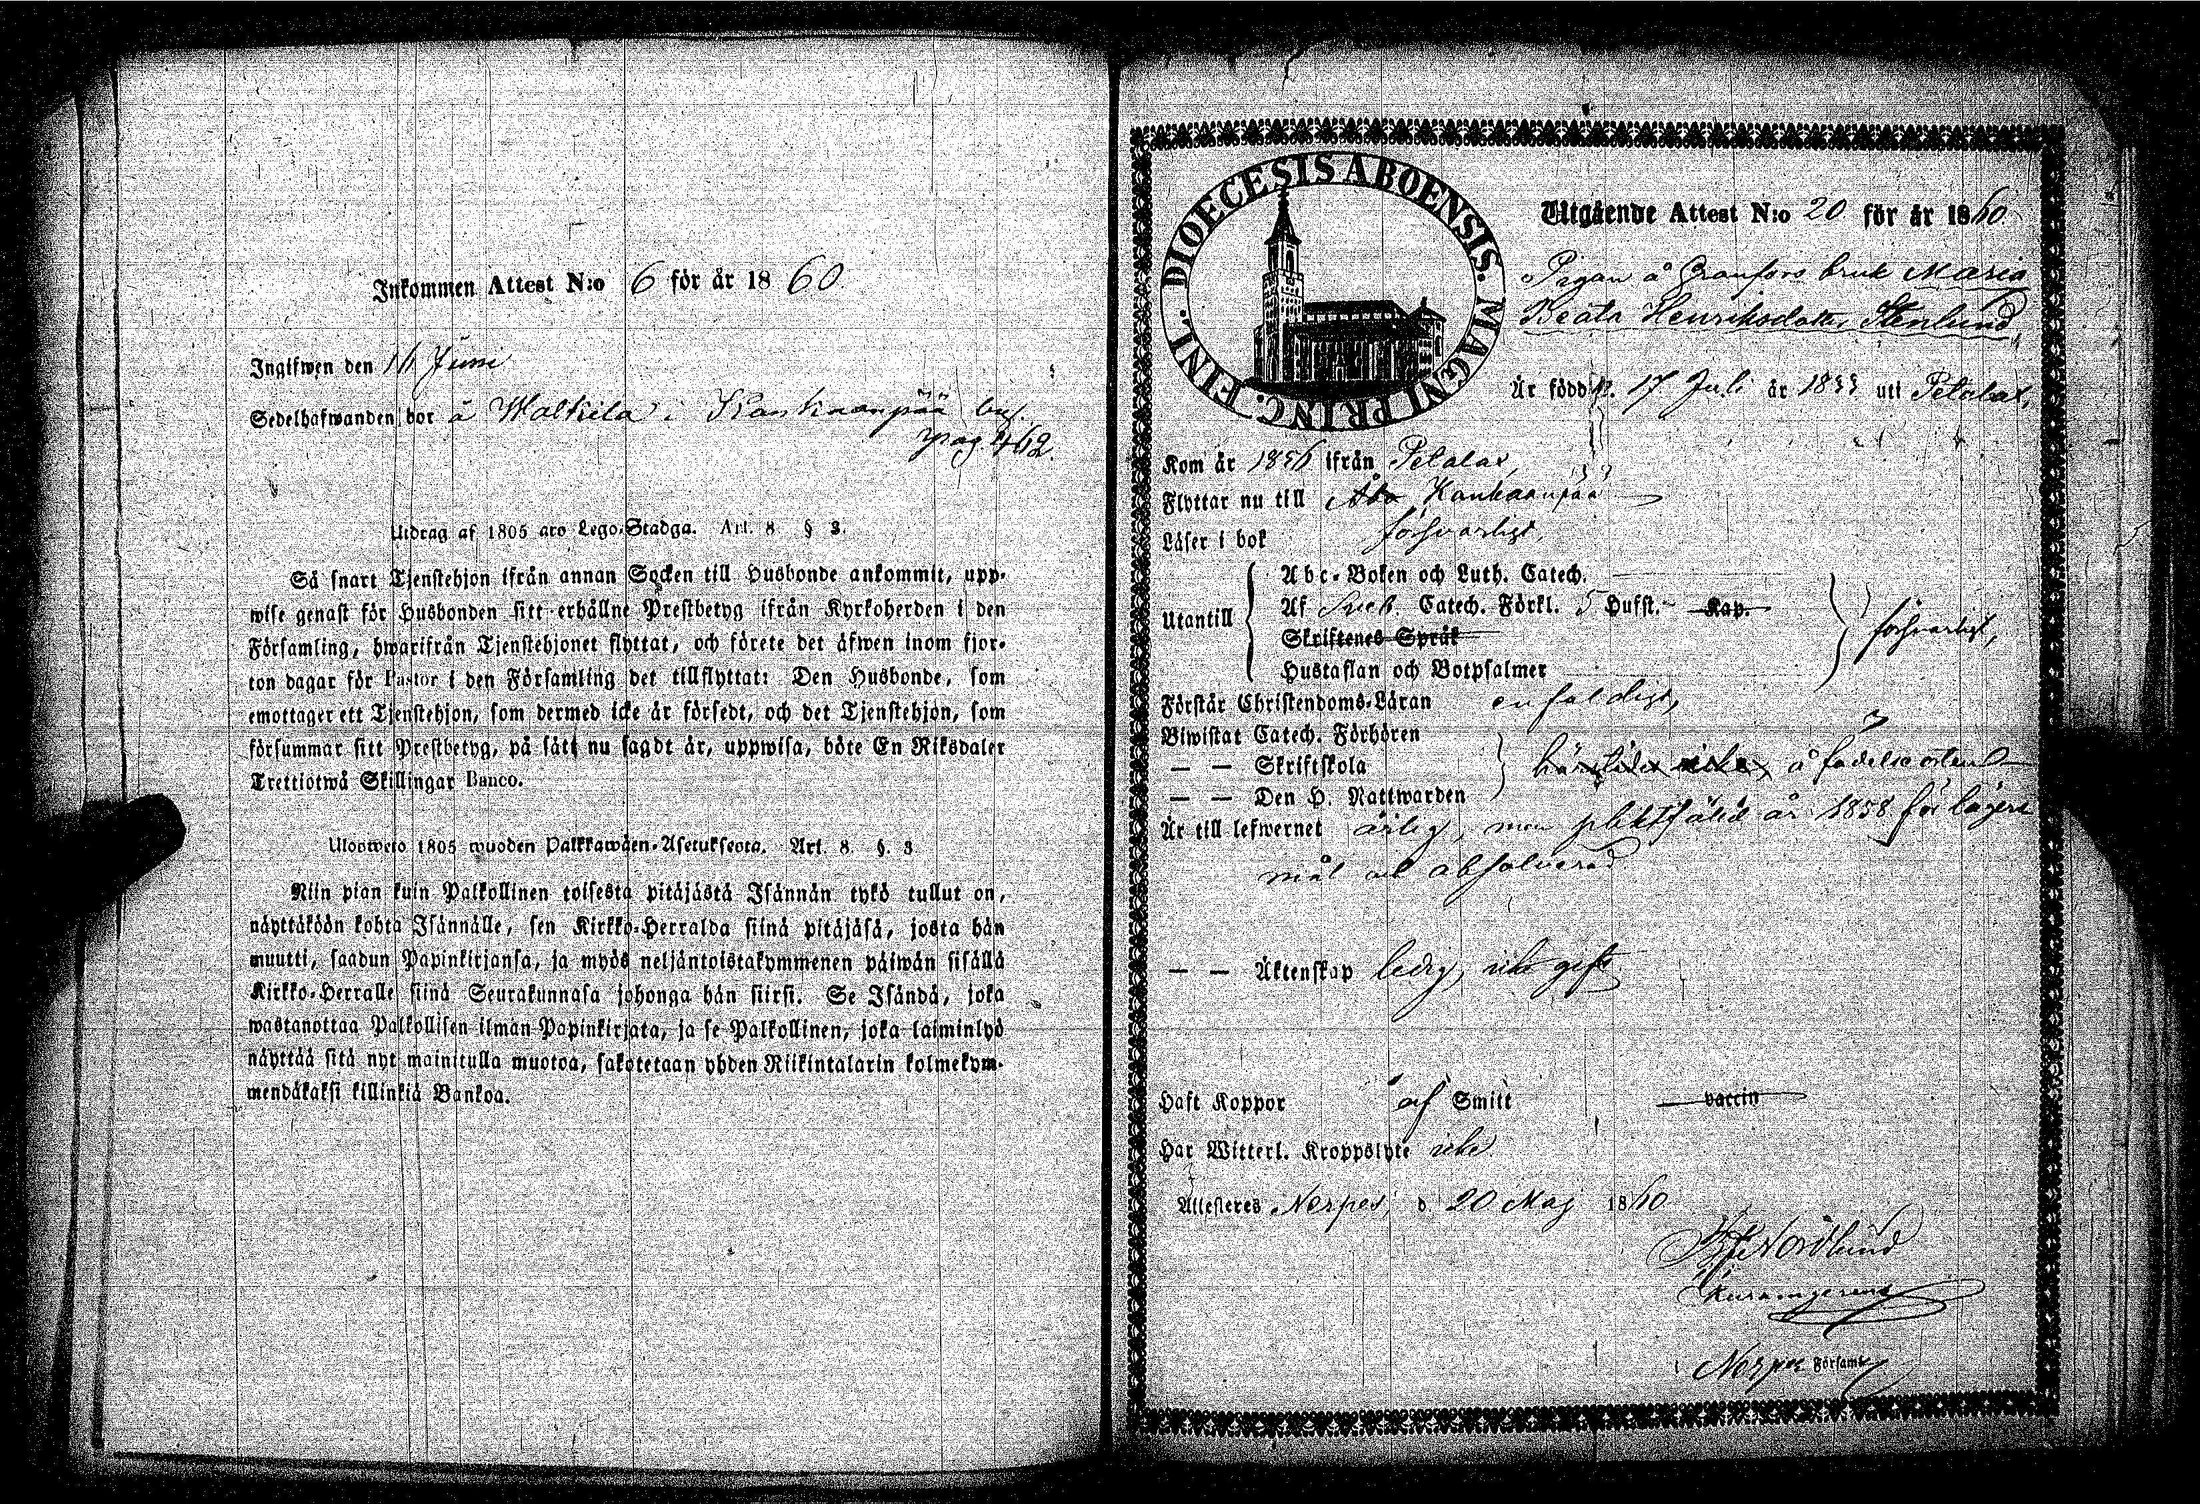 Inkommen Attest N:o 6 för år 1860.
Ingifwen den 16 Juni
Sedelhafwanden bor å Waltila i Kankaanpää by.
pag. 462.
Utdrag af 1805 års Lego-Stadga. Art. 8 § 3.
Så snart Tjenstehjon ifrån annan Socken till Husbonde ankommit, upp-
wise genast för Husbonden sitt erhållne Prestbetyg ifrån Kyrkoherden i den
Församling, hwarifrån Tjenstehjonet flyttat, och förete det äfwen inom fjor-
ton dagar för Pastor i den Församling det tillflyttat: Den Husbonde, som
emottager ett Tjenstehjon, som dermed icke är försedt, och det Tjenstehjon, som
försummar sitt Prestbetyg, på sätt nu sagdt är, uppwisa, böte En Riksdaler
Trettiotwå Skillingar Banco.
Ulosweto 1805 wuoden Palkkawäen-Asetuksesta. Art. 8. §. 3
Niin pian kuin Palkollinen toisesta pitäjästä Isännän tykö tullut on,
näyttäköön kohta Isännälle, sen Kirkko-Herralda siinä pitäjäsä, josta hän
muutti, saadun Papinkirjansa, ja myös neljäntoistakymmenen päiwän sisällä
Kirkko-Herralle siinä Seurakunnasa johonga hän siirsi. Se Isändä, joka
wastanottaa Palkollisen ilman Papinkirjata, ja se Palkollinen, joka laiminlyö
näyttää sitä nyt mainitulla muotoa, sakotetaan yhden Riikintalarin kolmekym-
mendäkaksi killinkiä Bankoa.
DIOECESIS ABOENSIS. MAGNI PRINC. FINL.
Utgående Attest N:o 20 för år 1860.
Pigan å Bruk Maria
Beata Henriksdotter Stenlund,
Är född d. 17 Juli år 1833 uti Petalax,
Kom år 1856 ifrån Petalax,
Flyttar nu till Åbo Kankaanpää
Läser i bok försvarligt,
Utantill
Abc-Boken och Luth. Catech.
Af Sveb. Catech. Förkl. 5 Hufst. Kap.
Skriftenes Språk
Hustaflan och Botpsalmer
försvarligt,
Förstår Christendoms-Läran enfaldigt,
Biwistat Catech. Förhören
— — Skriftskola
— — Den H. Nattwarden
å födelseorten
Är till lefwernet ärlig, men pliktfälld år 1858 för lägers
mål och absolverad
— — Äktenskap ledig, icke gift
Haft Koppor af Smitt vaccin
Har Witterl. Kroppslyte icke
Attesteras Nerpes, d. 20 Maj 1860
Nordlund
Nerpes Församl.